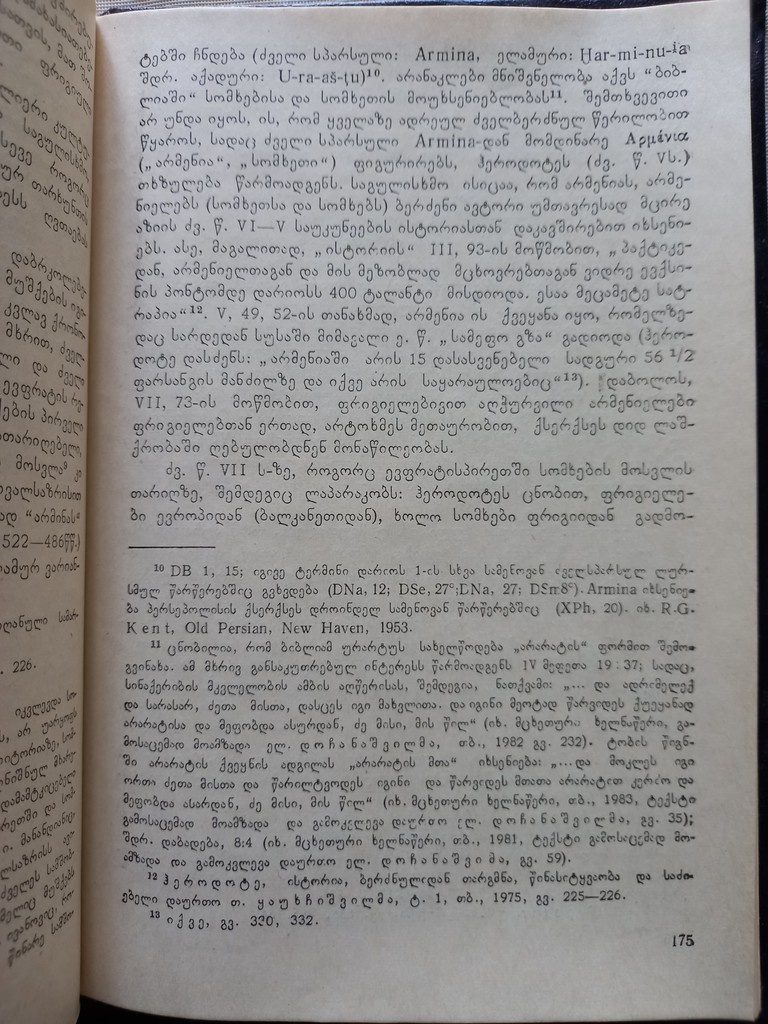 ტებში ჩნდება (ძველი სპარსული: Armina, ელამური: Ḫar-mi-nu-ia
შდრ. აქადური: U-ra-aš-ṭu)¹⁰. არანაკლები მნიშვნელობა აქვს "ბიბ-
ლიაში" სომხებისა და სომხეთის მოუხსენიებლობას¹¹. შემთხვევითი
არ უნდა იყოს, ის, რომ ყველაზე ადრეულ ძველბერძნულ წერილობით
წყაროს, სადაც ძველი სპარსული Armina-დან მომდინარე Αρμένια
(„არმენია“, „სომხეთი“) ფიგურირებს, ჰეროდოტეს (ძვ. წ. Vს.)
თხზულება წარმოადგენს. საგულისხმო ისიცაა, რომ არმენიას, არმე-
ნიელებს (სომხეთსა და სომხებს) ბერძენი ავტორი უმთავრესად მცირე
აზიის ძვ. წ. VI—V საუკუნეების ისტორიასთან დაკავშირებით იხსენი-
ებს. ასე, მაგალითად, „ისტორიის“ III, 93-ის მოწმობით, „პაქტიკე-
დან, არმენიელთაგან და მის მეზობლად მცხოვრებთაგან ვიდრე ევქსი-
ნის პონტომდე დარიოსს 400 ტალანტი მისდიოდა. ესაა მეცამეტე სატ-
რაპია“¹². V, 49, 52-ის თანახმად, არმენია ის ქვეყანა იყო, რომელზე-
დაც სარდედან სუსაში მიმავალი ე. წ. „სამეფო გზა“ გადიოდა (ჰერო-
დოტე დასძენს: „არმენიაში არის 15 დასასვენებელი სადგური 56 1/2
ფარსანგის მანძილზე და იქვე არის საყარაულოებიც“¹³). დაბოლოს,
VII, 73-ის მოწმობით, ფრიგიელებივით აღჭურვილი არმენიელები
ფრიგიელებთან ერთად, არტოხმეს მეთაურობით, ქსერქსეს დიდ ლაშ-
ქრობაში ღებულობდნენ მონაწილეობას.
ძვ. წ. VII ს-ზე, როგორც ევფრატისპირეთში სომხების მოსვლის
თარიღზე, შემდეგიც ლაპარაკობს: ჰეროდოტეს ცნობით, ფრიგიელე-
ბი ევროპიდან (ბალკანეთიდან), ხოლო სომხები ფრიგიიდან გადმო-
¹⁰ DB 1, 15; იგივე ტერმინი დარიოს 1-ის სხვა სამენოვან ძველსპარსულ ლურ-
სმულ წარწერებშიც გვხვდება (DNa, 12; DSe, 27; DNa, 27; DSm8). Armina იხსენიე-
ბა პერსეპოლისის ქსერქსეს დროინდელ სამენოვან წარწერებშიც (XPh, 20). იხ. R.G.
Kent, Old Persian, New Haven, 1953.
¹¹ ცნობილია, რომ ბიბლიამ ურარტუს სახელწოდება „არარატის“ ფორმით შემო-
გვინახა. ამ მხრივ განსაკუთრებულ ინტერესს წარმოადგენს IV მეფეთა 19:37; სადაც,
სინაქერიბის მკვლელობის ამბის აღწერისას, შემდეგია, ნათქვამი: „... და ადრიმელექ
და სარასარ, ძეთა მისთა, დასცეს იგი მახვილითა. და იგინი მეოტად წარვიდეს ქუეყანად
არარატისა და მეფობდა ასურდან, ძე მისი, მის წილ“ (იხ. მცხეთური ხელნაწერი, გა-
მოსაცემად მოამზადა ელ. დოჩანაშვილმა, თბ., 1982 გვ. 232). ტობის წიგნ-
ში არარატის ქვეყნის ადგილას „არარატის მთა“ იხსენიება: „...და მოკლეს იგი
ორთა ძეთა მისთა და წარილტვოდეს იგინი და წარვიდეს მთათა არარატით კერძო და
მეფობდა ასარდან, ძე მისი, მის წილ“ (იხ. მცხეთური ხელნაწერი, თბ., 1983, ტექსტი
გამოსაცემად მოამზადა და გამოკვლევა დაურთო ელ. დოჩანაშვილმა, გვ. 35);
შდრ. დაბადება, 8:4 (იხ. მცხეთური ხელნაწერი, თბ., 1981, ტექსტი გამოსაცემად მო-
ამზადა და გამოკვლევა დაურთო ელ. დოჩანაშვილმა, გვ. 59).
¹² ჰეროდოტე, ისტორია, ბერძნულიდან თარგმნა, წინასიტყვაობა და საძი-
ებელი დაურთო თ. ყაუხჩიშვილმა, ტ. 1, თბ., 1975, გვ. 225—226.
¹³ იქვე, გვ. 330, 332.
175